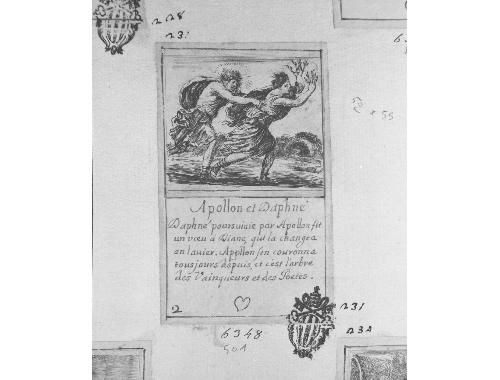 228
231
Apollon et Daphné
Daphné poursuivie par Apollon fit
un vœu à Diane, qui la changea
en laurier. Apollon s'en couronna
tousjours depuis, et c'est l'arbre
des Vainqueurs et des Poetes.
2
231
6348
501